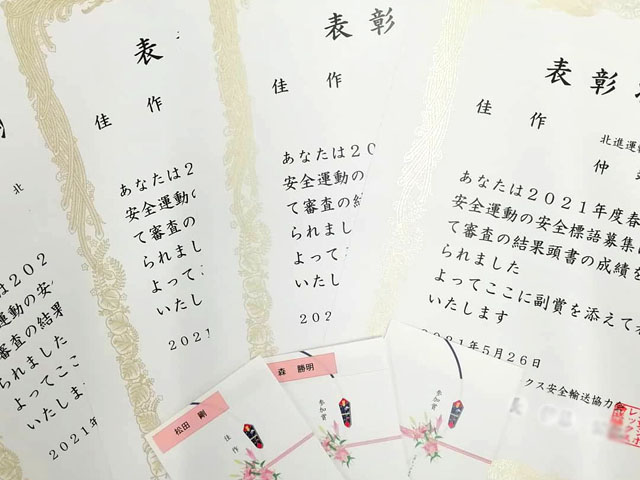 北
は202
運動の安
審査の結果
られました
よってここ
いたしま
2021年
表
佳作
あなたは2
安全運動
て審査の
られまし
よって
いたし
2021
表彰
佳作
あなたは20
安全運動の
て審査の結
られまし
よって
いたし
202
表彰
佳作
北進運
仲
あなたは2021年度春
安全運動の安全標語募集
て審査の結果頭書の成績を
られました
よってここに副賞を添えて
いたします
2021年5月26日
クス安全輸送協力会
松田 剛
佳作
森 勝明
参加賞
参加賞